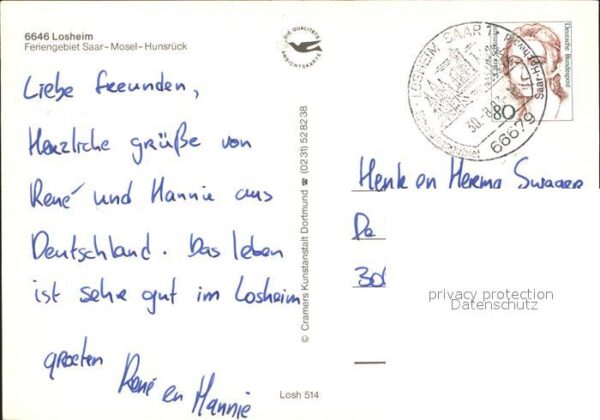 6646 Losheim
Feriengebiet Saar-Mosel-Hunsrück
DIE QUALITÄTS
ANSICHTSKARTE
Liebe freunden,
Herzliche grüße von
René und Hannie aus
Deutschland. Das leben
ist sehe gut im Losheim
groeten
René en Hannie
© Cramers Kunstanstalt Dortmund ☎ (0231) 528238
Losh 514
LOSHEIM, SAAR 1
66679
30.8.
Deutsche Bundespost
80
Henk en Herma Swager
De
30
privacy protection
Datenschutz